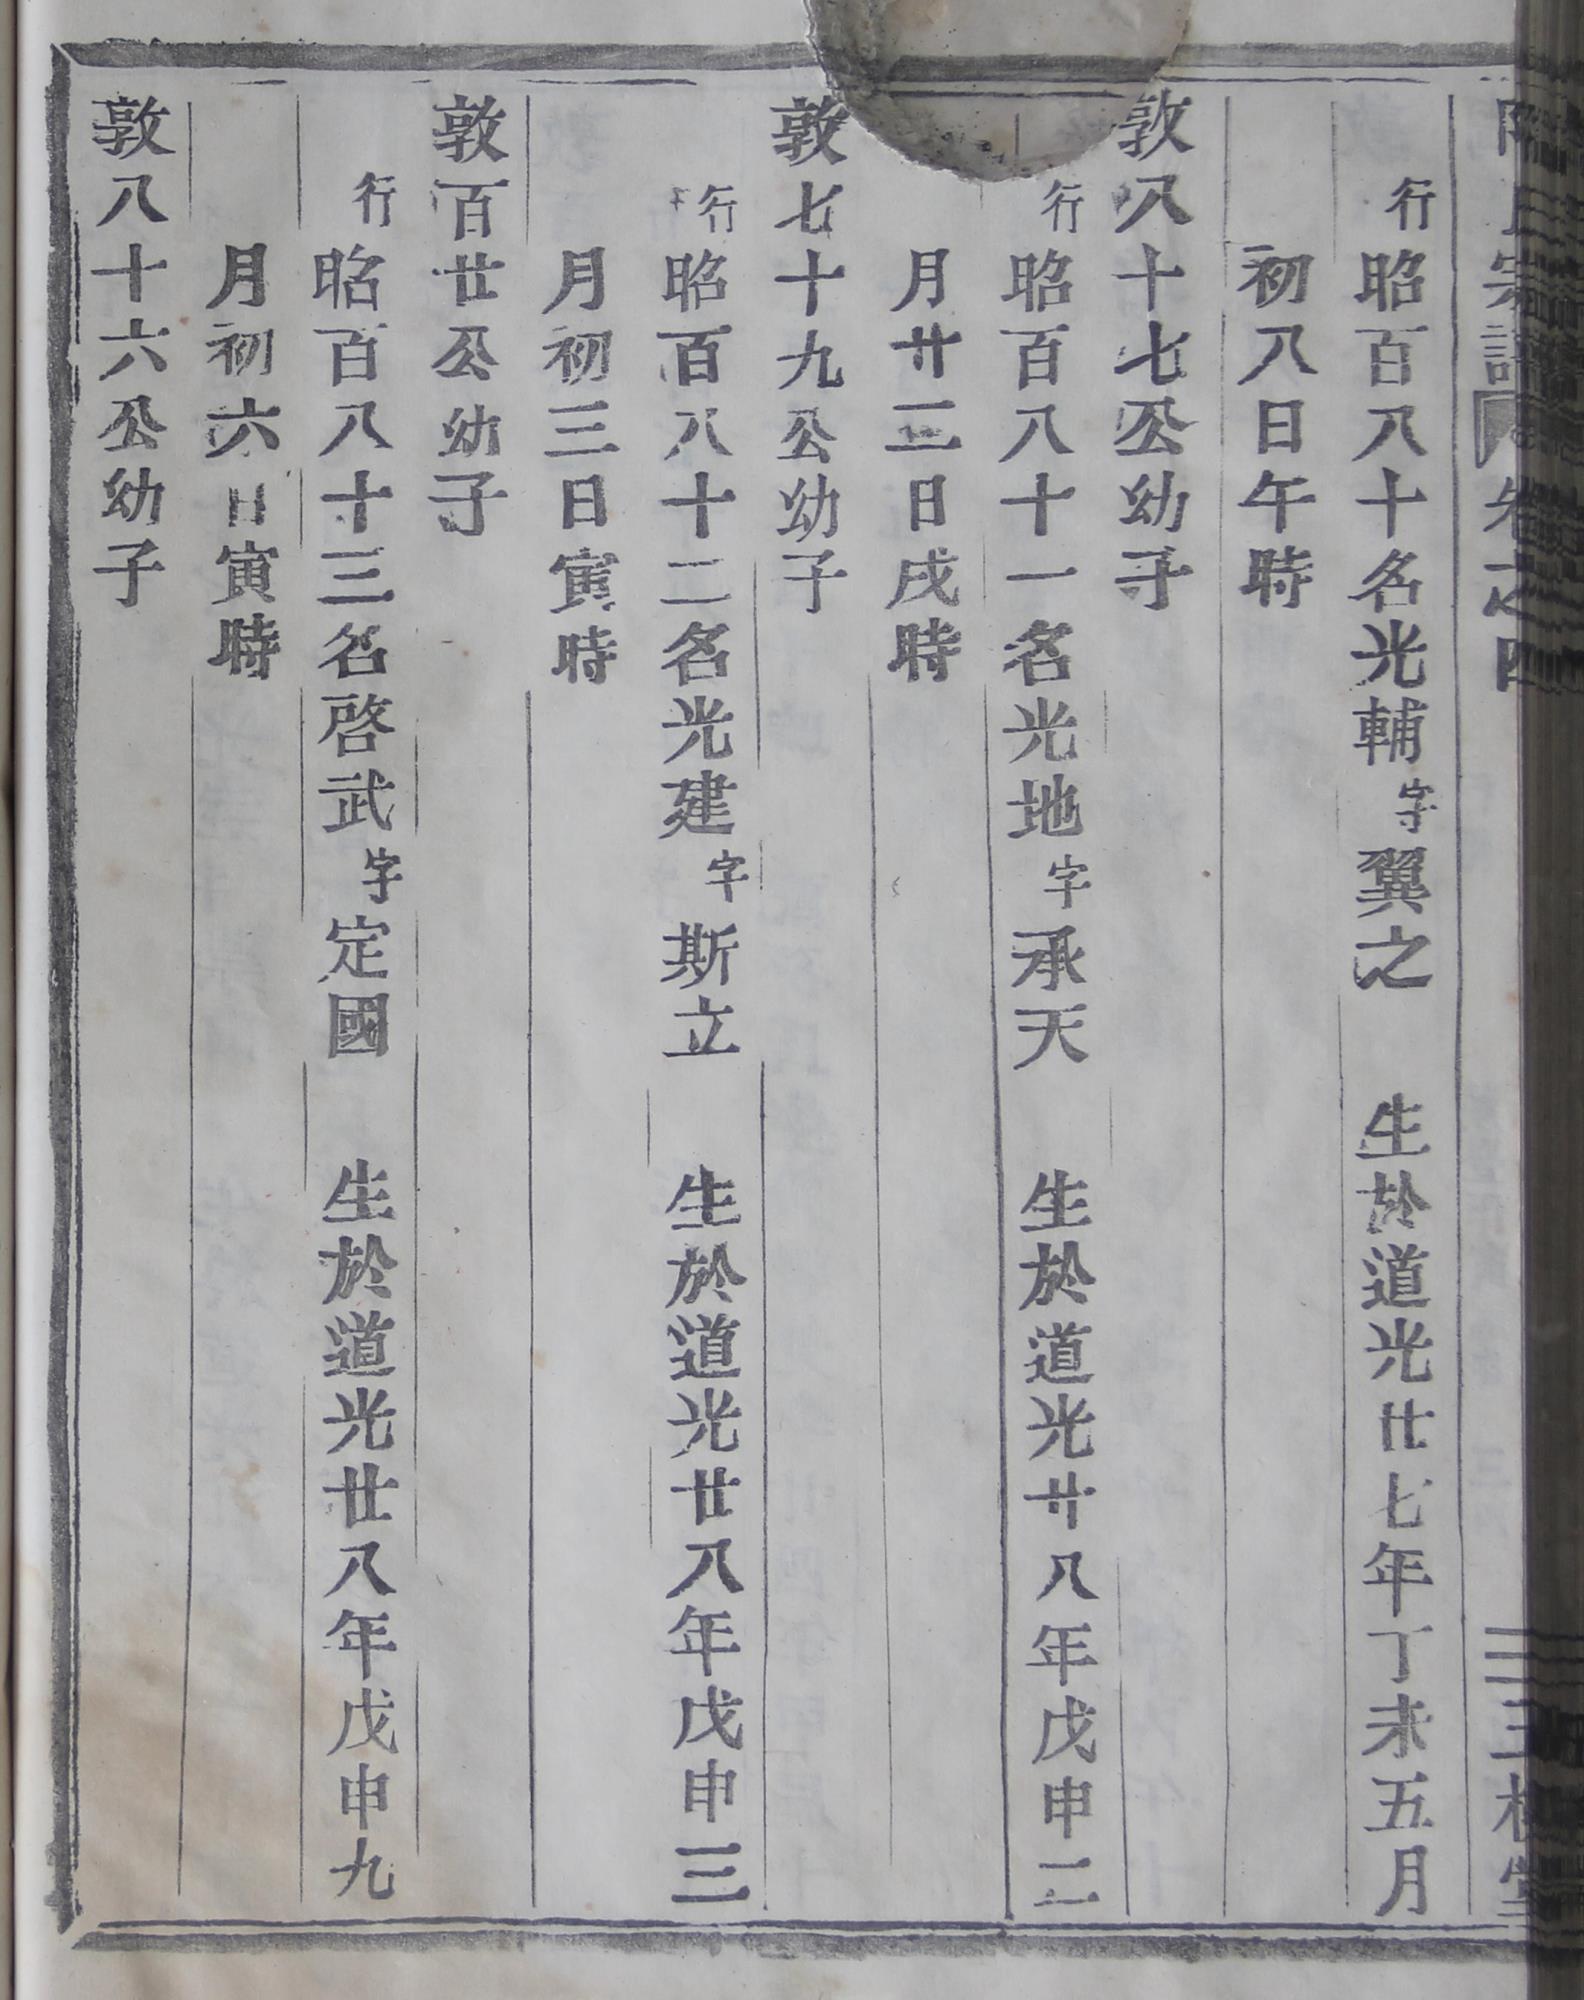 宗譜 卷之四 三槐堂
行昭百八十名光輔字翼之 生於道光廿七年丁未五月
初八日午時
敦八十七公幼子
行昭百八十一名光地字承天 生於道光廿八年戊申二
月廿二日戌時
敦七十九公幼子
行昭百八十二名光建字斯立 生於道光廿八年戊申三
月初三日寅時
敦百廿公幼子
行昭百八十三名啓武字定國 生於道光廿八年戊申九
月初六日寅時
敦八十六公幼子